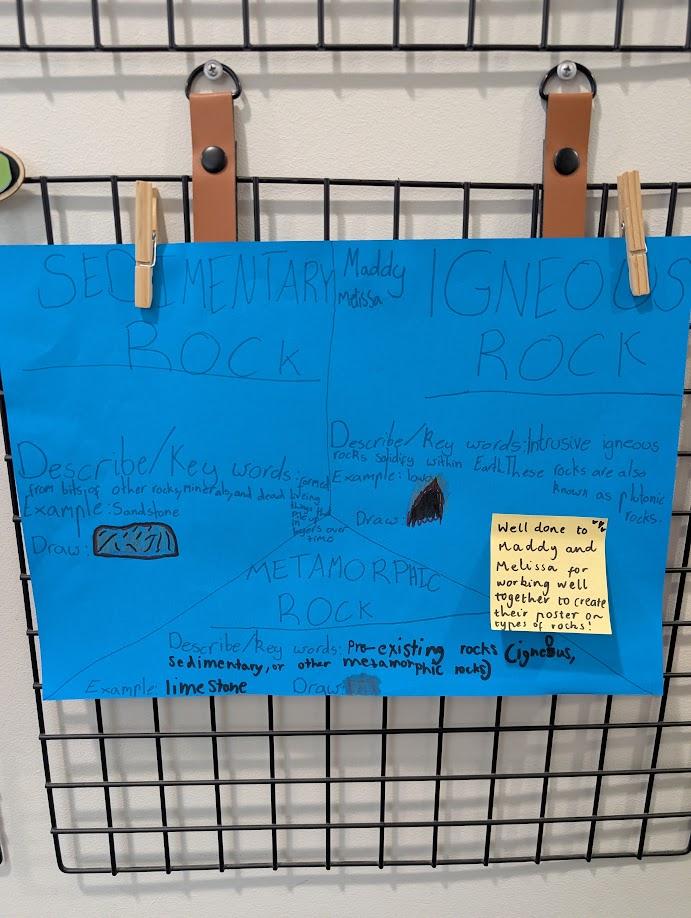 SEDIMENTARY
ROCK
Describe/Key words: formed
from bits of other rocks, minerals, and dead liveing
things that
pile
up
in
layers over
time
Example: Sandstone
Draw:
Maddy
Melissa
IGNEOUS
ROCK
Describe/Key words: Intrusive igneous
rocks solidify within Earth. These rocks are also
known as plutonic
rocks.
Example:
Draw:
Well done to
Maddy and
Melissa for
working well
together to create
their poster on
types of rocks!
METAMORPHIC
ROCK
Describe/Key words: Pre-existing rocks (igneous,
sedimentary, or other metamorphic rocks)
Example: limestone
Draw: